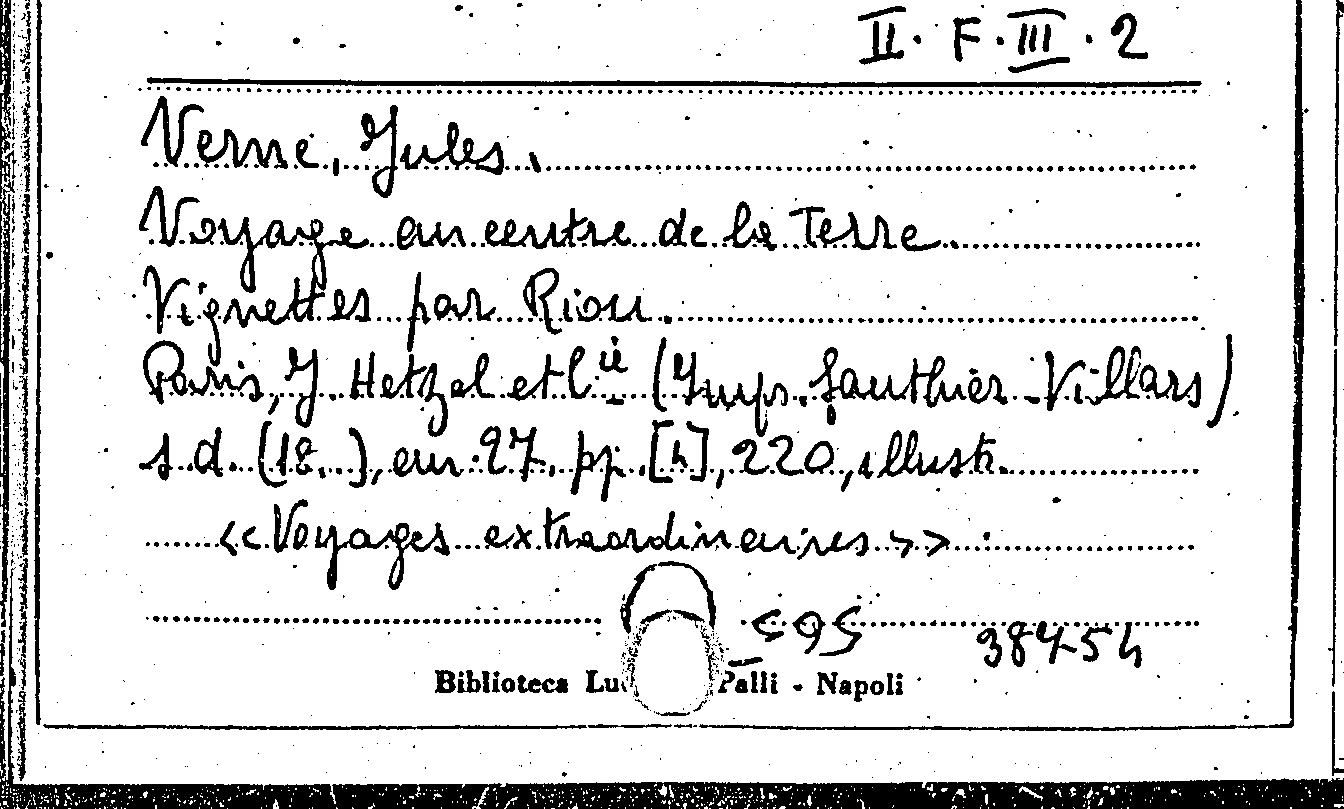 II. F. III. 2
Verne, Jules.
Voyage au centre de la Terre.
Vignettes par Riou.
Paris, J. Hetzel et C.ie (Imp. Gauthier-Villars)
s.d. (18..), cm. 27, pp. [4], 220, illustr.
«Voyages extraordinaires».
38754
Biblioteca Palli - Napoli